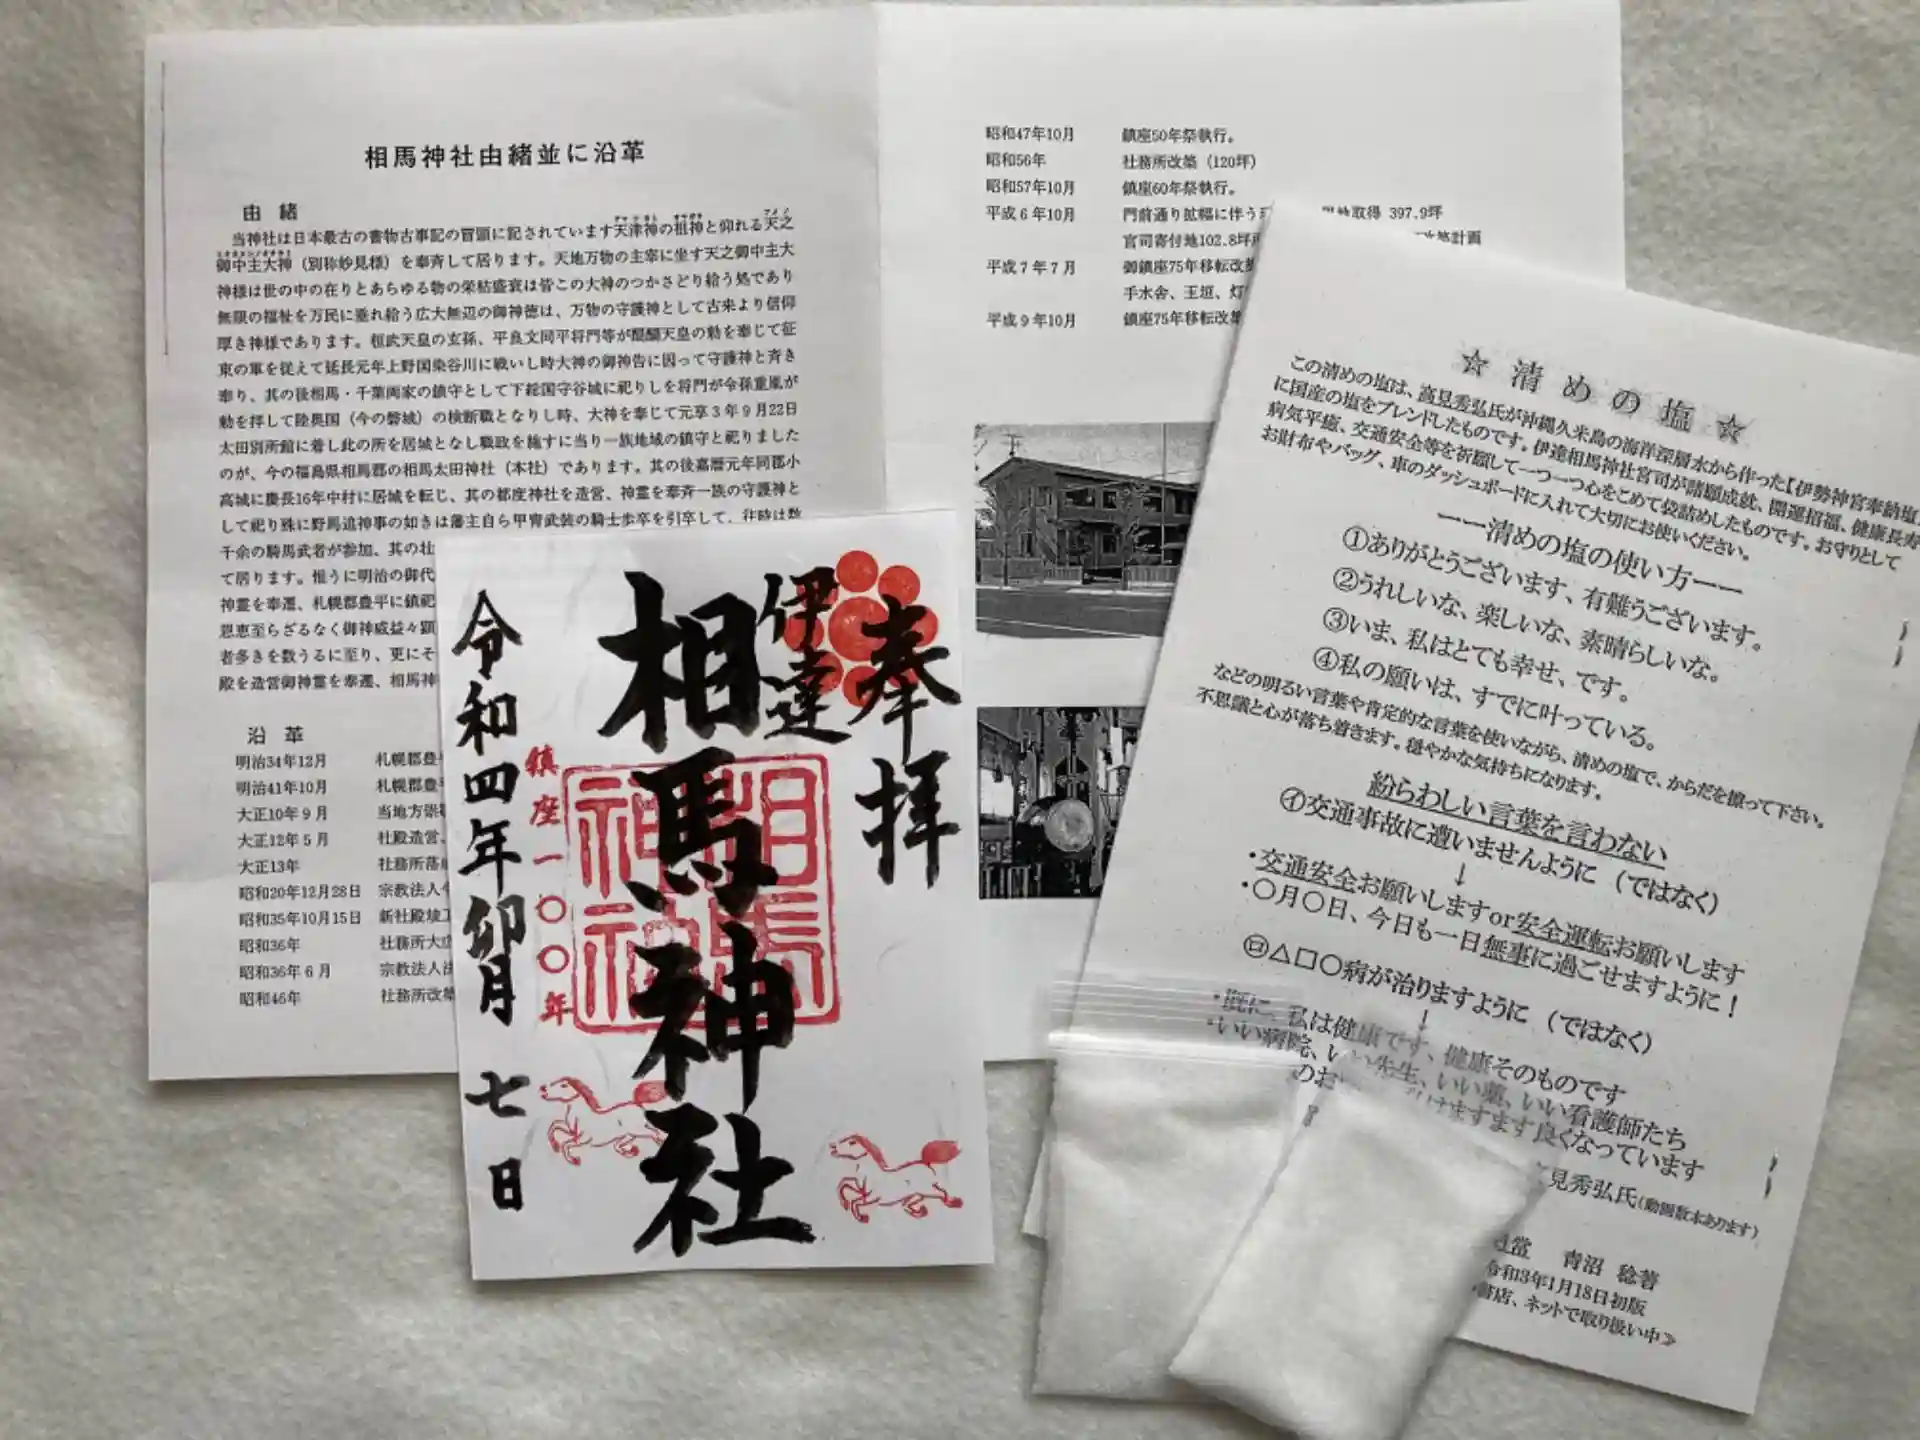 相馬神社由緒並に沿革
由緒
当神社は日本最古の書物古事記の冒頭に記されています天津神の祖神と仰れる天之
御中主大神（別称妙見様）を奉斉して居ります。天地万物の主宰に坐す天之御中主大
神様は世の中の在りとあらゆる物の栄枯盛衰は皆この大神のつかさどり給う処であり
無限の福祉を万民に垂れ給う広大無辺の御神徳は、万物の守護神として古来より信仰
厚き神様であります。桓武天皇の玄孫、平良文同平将門等が醍醐天皇の勅を奉じて征
東の軍を従えて延長元年上野国染谷川に戦いし時大神の御神告に因って守護神と斉き
奉り、其の後相馬・千葉両家の鎮守として下総国守谷城に祀りしを将門が令孫重胤が
勅を拝して陸奥国（今の磐城）の検断職となりし時、大神を奉じて元享３年９月22日
太田別所館に着し此の所を居城となし職政を施すに当り一族地域の鎮守と祀りました
のが、今の福島県相馬郡の相馬太田神社（本社）であります。其の後嘉暦元年同郡小
高城に慶長16年中村に居城を転じ、其の都度神社を造営、神霊を奉斉一族の守護神と
して祀り殊に野馬追神事の如きは藩主自ら甲冑武装の騎士歩卒を引卒して、往時は数
千余の騎馬武者が参加、其の壮
て居ります。惟うに明治の御代
神霊を奉遷、札幌郡豊平に鎮祀
恩恵至らざるなく御神威益々顕
者多きを数うるに至り、更にそ
殿を造営御神霊を奉遷、相馬神
沿革
明治34年12月　札幌郡豊
明治41年10月　札幌郡豊
大正10年９月　当地方崇
大正12年５月　社殿造営、
大正13年　社務所落
昭和20年12月28日　宗教法人
昭和35年10月15日　新社殿竣
昭和36年　社務所大
昭和36年６月　宗教法人
昭和46年　社務所改築
昭和47年10月　鎮座50年祭執行。
昭和56年　社務所改築（120坪）
昭和57年10月　鎮座60年祭執行。
平成６年10月　門前通り拡幅に伴う　取得 397.9坪
官司寄付地102.8坪　計画
平成７年７月　御鎮座75年移転改築
手水舎、玉垣、灯
平成９年10月　鎮座75年移転改築
奉拝
伊達
相馬神社
鎮座一〇〇年
相馬神社
令和四年卯月七日
☆清めの塩☆
この清めの塩は、高見秀弘氏が沖縄久米島の海洋深層水から作った【伊勢神宮奉納塩
に国産の塩をブレンドしたものです。伊達相馬神社宮司が諸願成就、開運招福、健康長寿
病気平癒、交通安全等を祈願して一つ一つ心をこめて袋詰めしたものです。お守りとして
お財布やバッグ、車のダッシュボードに入れて大切にお使いください。
ーー清めの塩の使い方ーー
①ありがとうございます、有難うございます。
②うれしいな、楽しいな、素晴らしいな。
③いま、私はとても幸せ、です。
④私の願いは、すでに叶っている。
などの明るい言葉や肯定的な言葉を使いながら、清めの塩で、からだを撫って下さい。
不思議と心が落ち着きます。穏やかな気持ちになります。
紛らわしい言葉を言わない
㋑交通事故に遭いませんように（ではなく）
↓
・交通安全お願いしますor安全運転お願いします
・〇月〇日、今日も一日無事に過ごせますように！
㋺△□〇病が治りますように（ではなく）
↓
・既に、私は健康です、健康そのものです
・いい病院、いい先生、いい薬、いい看護師たち
のお けますます良くなっています
見秀弘氏（動画数本あります）
青沼 稔著
令和3年1月18日初版
書店、ネットで取り扱い中≫